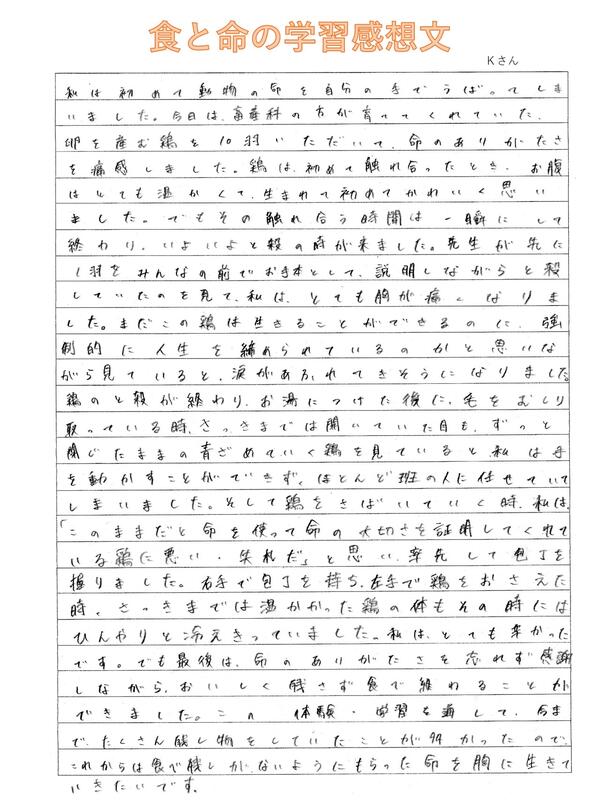 食と命の学習感想文
Kさん
私は初めて動物の命を自分の手でうばってしま
いました。今日は、畜産科の方が育ててくれていた、
卵を産む鶏を10羽いただいて、命のありがたさ
を痛感しました。鶏は、初めて触れ合ったとき、お腹
はとても温かくて、生まれて初めてかわいく思い
ました。でもその触れ合う時間は一瞬にして
終わり、いよいよと殺の時が来ました。先生が先に
1羽をみんなの前でお手本として、説明しながらと殺
していたのを見て、私は、とても胸が痛くなりま
した。まだこの鶏は生きることができるのに、強
制的に人生を縮められているのかと思いな
がら見ていると、涙があふれてきそうになりました。
鶏のと殺が終わり、お湯につけた後に、毛をむしり
取っている時、さっきまでは開いていた目も、ずっと
閉じたままの青ざめていく鶏を見ていると私は手
を動かすことができず、ほとんど班の人に任せていて
しまいました。そして鶏をさばいていく時、私は、
「このままだと命を使って命の大切さを証明してくれて
いる鶏に悪い・失礼だ」と思い、率先して包丁を
握りました。右手で包丁を持ち、左手で鶏をおさえた
時、さっきまでは温かかった鶏の体もその時には
ひんやりと冷えきっていました。私は、とても辛かった
です。でも最後は、命のありがたさを忘れず感謝
しながら、おいしく残さず食で終わることが
できました。この　体験・学習を通して、今ま
で、たくさん残し物をしていたことが多かったので、
これからは食べ残しがないようにもらった命を胸に生きて
いきたいです。